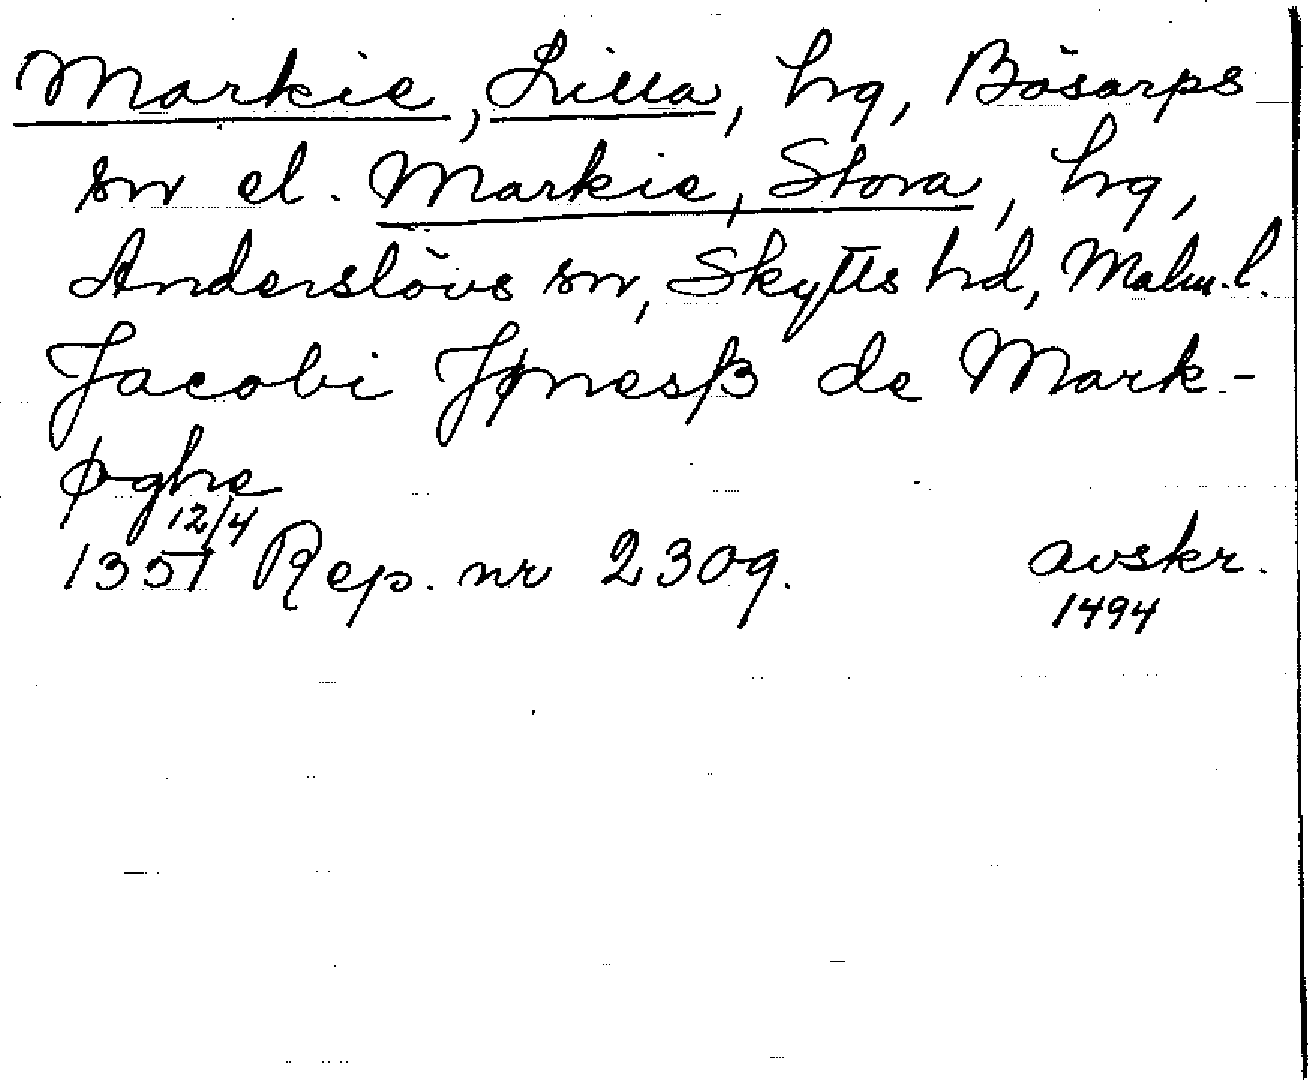 Markie, Lilla, hg, Bösarps
sn el. Markie, Stora, hg,
Anderslövs sn, Skytts hd, Malm.l.
Jacobi Jønesβ de Mark-
øghe
12/4
1357 Rep. nr 2309. avskr.
1494